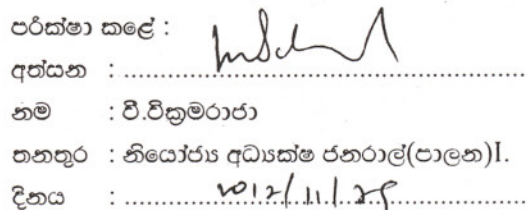 පරීක්ෂා කළේ :
අත්සන : ................................................
නම : වී.වික්‍රමරාජා
තනතුර : නියෝජ්‍ය අධ්‍යක්ෂ ජනරාල්(පාලන)I.
දිනය : 2012/11/29